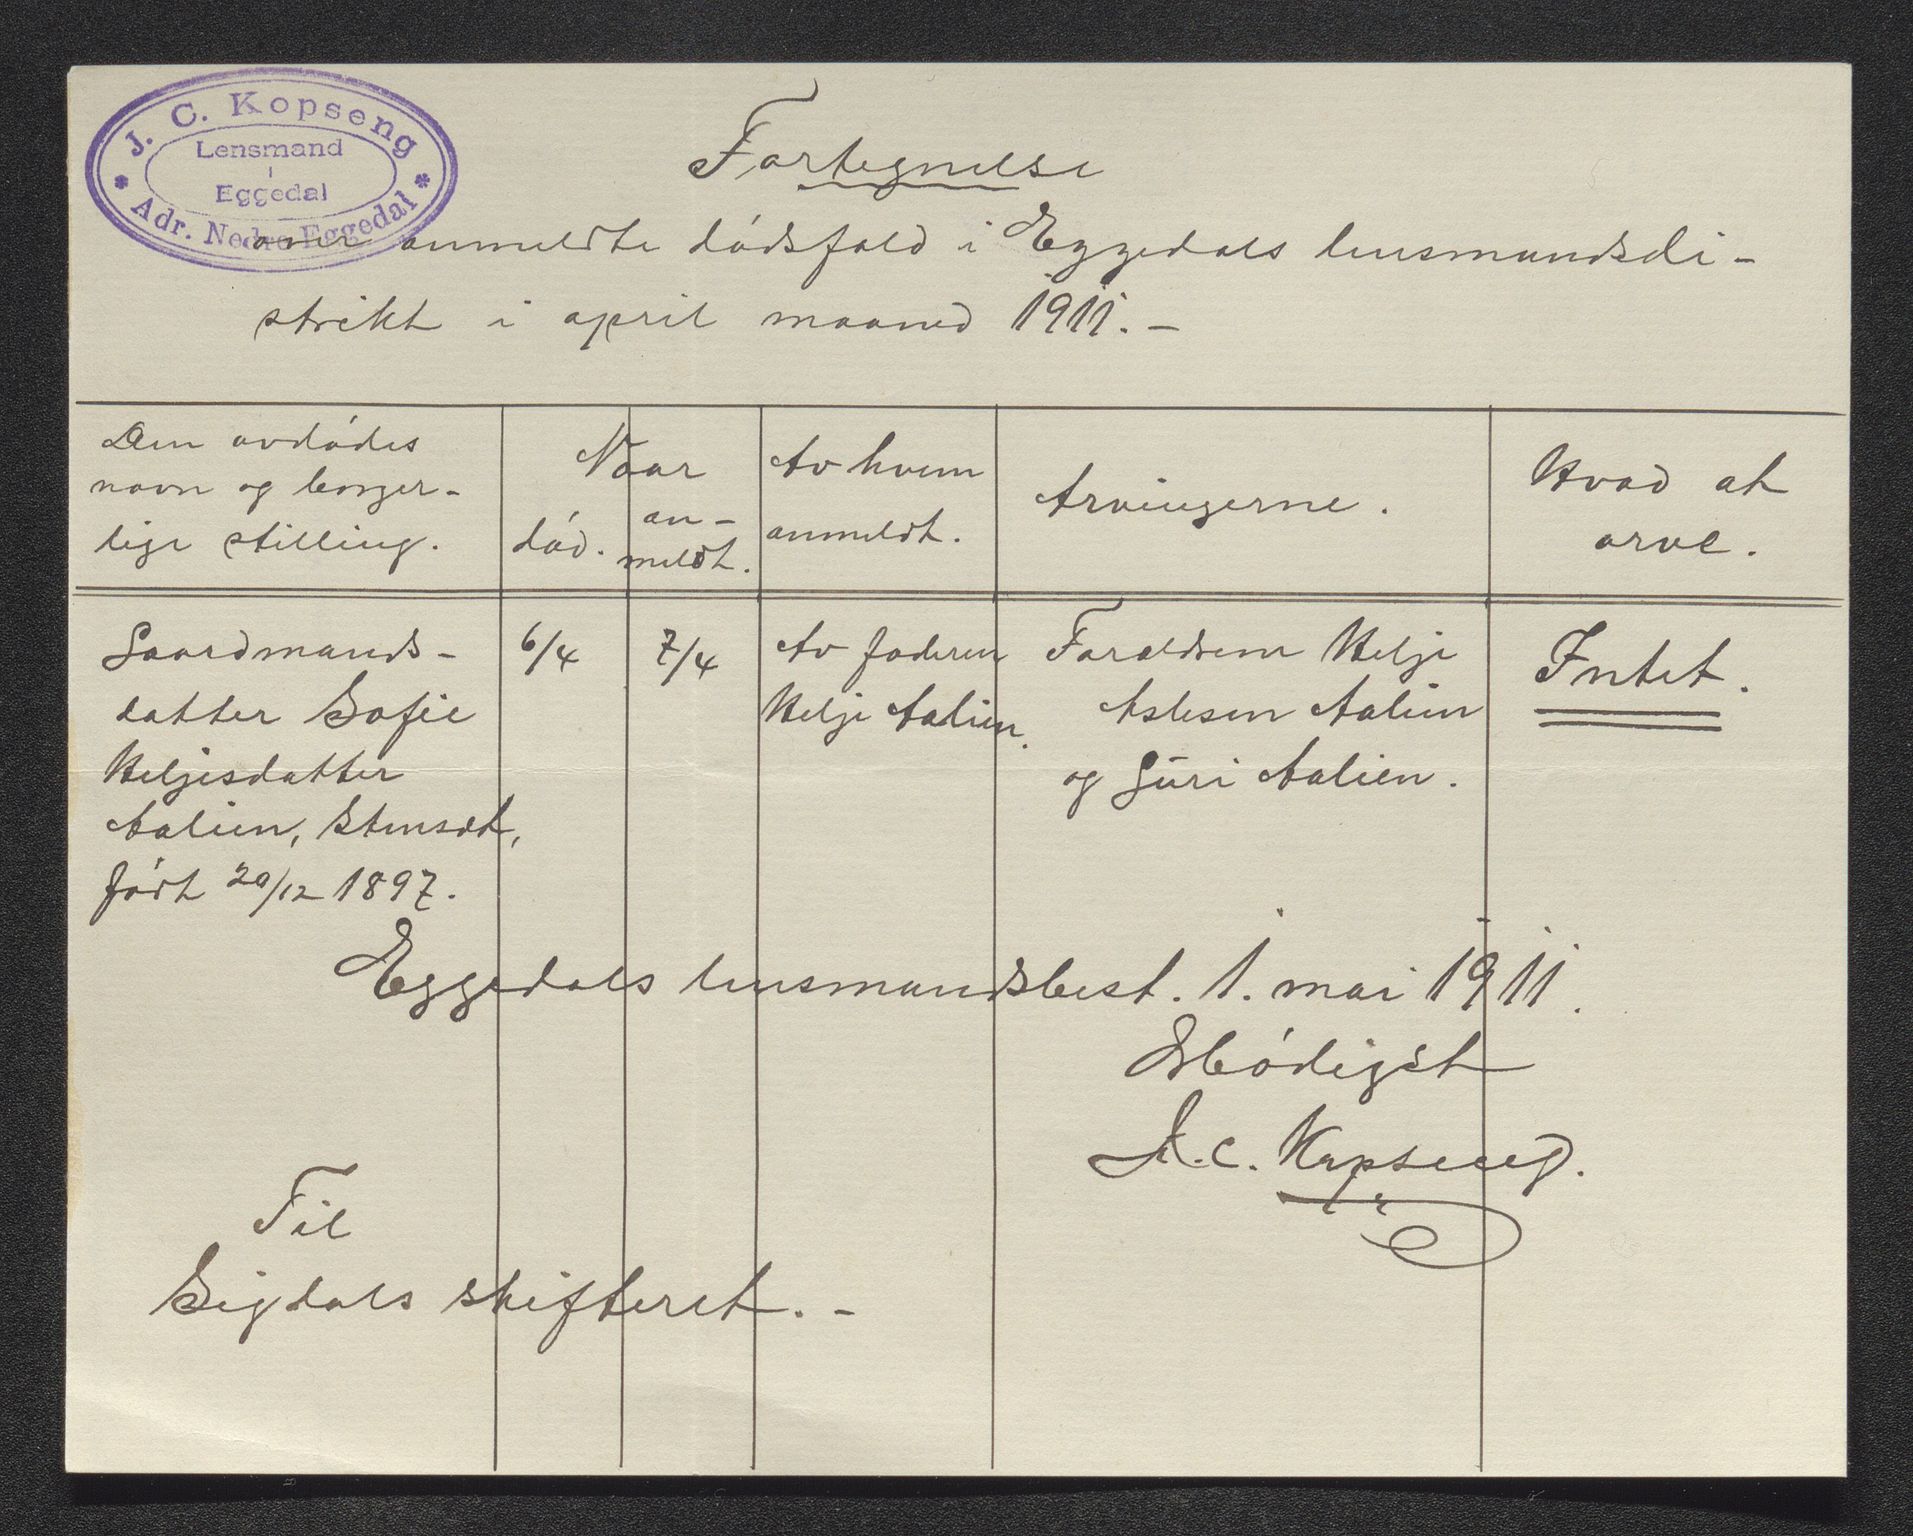 J. C. Kopseng
Lensmand
i
Eggedal
* Adr. Nedre Eggedal *
Fortegnelse
over anmeldte dódsfald i Eggedals lensmandsdi-
strikt i april maaned 1911. -
Den avdódes
navn og borger-
lige stilling.
Naar
dód.
an-
meldt.
Av hvem
anmeldt.
Arvingerne.
Hvad at
arve.
Gaardmands-
datter Sofie
Heljesdatter
Aalien, Stensæt,
fódt 20/12 1897.
6/4
7/4
Av faderen
Helje Aalien.
Foreldrene Helje
Aslesen Aalien
og Guri Aalien.
Intet.
Eggedals lensmandsbest. 1. mai 1911.
Ærbódigst
J. C. Kopseng.
Til
Sigdals skifteret. -